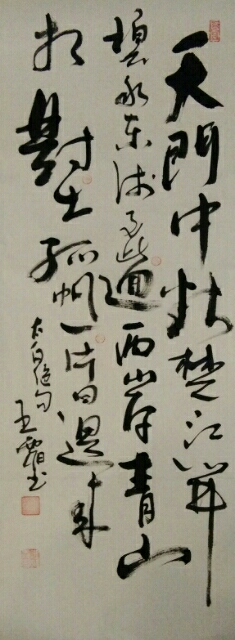 天門中斷楚江開
碧水東流至此迴兩岸青山
相對出孤帆一片日邊来
太白绝句
王 书